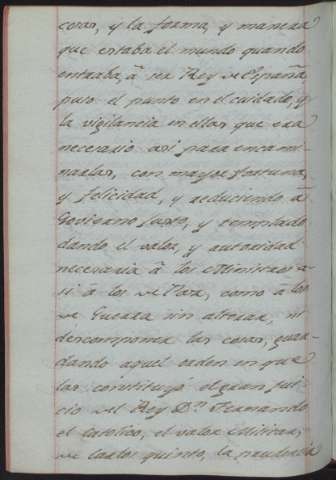 cosas, y la forma, y manera
que estaba el mundo quando
entraba, â ser Rey de España
puso el punto en el cuidado, y
la vigilancia en ellas que era
necesario asi para encami-
narlas, con mayor fortuna,
y felicidad, y reduciendo, â
Govierno justo, y templado
dando el valor, y autoridad
necesaria â los Ministros a-
si â los de Paz, como â los
de Guerra sin alterar, ni
descomponer las cosas, guar-
dando aquel orden en que
las constituyó el gran jui-
cio del Rey Dn. Fernando
el Catolico, el valor Militar,
de Carlos quinto, la prudencia